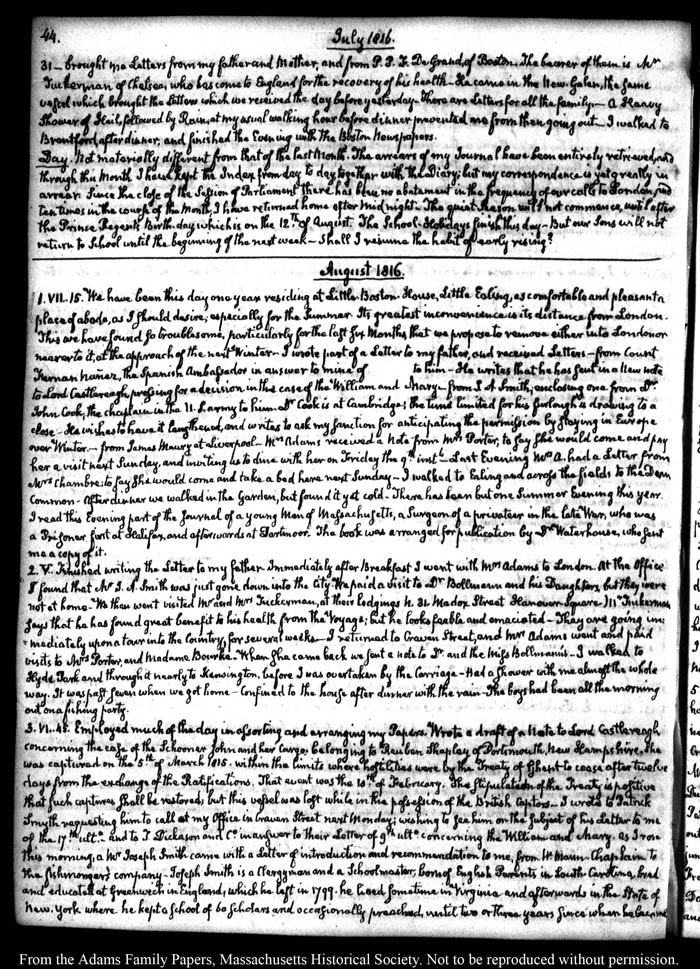 44.
July 1816.
31 – brought me Letters from my father and Mother, and from P. P. F. De Grand, of Boston. The bearer of them is Mr
Tuckerman of Chelsea, who has come to England for the recovery of his health – He came in the New-Galen, the same
vessel which brought the Letters which we received the day before yesterday – There are Letters for all the family. – A Heavy
Shower of Hail, followed by Rain, at my usual walking hour before dinner prevented me from then going out – I walked to
Brentford, after dinner, and finished the Evening with the Boston Newspapers.
Day. Not materially different from that of the last Month. The arrears of my Journal have been entirely retrieved, and
through this Month, I have kept the Index from day to day together with the Diary; but my correspondence is yet greatly in
arrear. Since the close of the Session of Parliament there has been no abatement in the frequency of our calls to London, and
ten times in the course of the Month, I have returned home after Midnight. The quiet Season will not commence, until after
the Prince Regent's Birth-day which is on the 12th of August. The School-Holidays finish this day – But our Sons will not
return to School until the beginning of the next week – Shall I resume the habit of early rising?
August 1816.
1. VII. 15. We have been this day one year residing at Little Boston-House, Little Ealing, as comfortable and pleasant a
place of abode, as I should desire; especially for the Summer. Its greatest inconvenience is its distance from London.
This we have found so troublesome, particularly for the last six Months, that we propose to remove either into London or
nearer to it, at the approach of the next Winter – I wrote part of a Letter to my father, and received Letters – from Count
Fernan Nuñez, the Spanish Ambassador in answer to mine of to him – He writes that he has sent in a new note
to Lord Castlereagh, pressing for a decision in the case of the William and Mary – from J. A. Smith, enclosing one from Dr.
John Cook, the chaplain in the U.S. army to him – Dr Cook is at Cambridge; the time limited for his furlough is drawing to a
close – He wishes to have it lengthened, and writes to ask my sanction for anticipating the permission by staying in Europe
over Winter – from James Maury at Liverpool – Mrs Adams received a Note from Mrs Porter, to say she would come and pay
her a visit next Sunday, and inviting us to dine with her on Friday the 9th inst – Last Evening Mrs A. had a Letter from
Mrs Chambre; to say she would come and take a bed here next Sunday – I walked to Ealing and across the fields to the
Common – After dinner we walked in the Garden, but found it yet cold – There has been but one Summer Evening this year.
I read this Evening part of the Journal of a young Man of Massachusetts, a Surgeon of a privateer in the late War, who was
a Prisoner first at Halifax, and afterwards at Dartmoor. The book was arranged for publication by Dr Waterhouse, who sent
me a copy of it.
2. V. Finished writing the Letter to my father. Immediately after Breakfast I went with Mrs Adams to London. At the Office
I found that Mr J. A. Smith was just gone down into the City. We paid a visit to Dr Bollmann and his Daughters, but they were
not at home – We then went visited Mr and Mrs Tuckerman, at their lodgings N. 31 Madox Street Hanover Square. Mr Tuckerman
says that he has found great benefit to his health from the Voyage; but he looks feeble and emaciated – They are going im:
:mediately upon a tour into the Country, for several weeks – I returned to Craven Street, and Mrs Adams went and paid
visits to Mrs Porter, and Madame Bourke. When she came back we sent a note to Dr. and the Miss Bollmanns – I walked to
Hyde Park and through it nearly to Kensington, before I was overtaken by the Carriage – Had a shower with me almost the whole
way. It was past seven when we got home – Confined to the house after dinner with the rain – The boys had been all the morning
out on a fishing party.
3. VI. 45. Employed much of the day in assorting and arranging my Papers. Wrote a draft of a Note to Lord Castlereagh
concerning the case of the Schooner John and her cargo, belonging to Reuben Shapley of Portsmouth, New Hampshire; She
was captured on the 5th of March 1815. within the limits where hostilities were by the Treaty of Ghent to cease after twelve
days from the exchange of the Ratifications. That event was the 18th of February. The stipulation of the Treaty is positive
that such captures shall be restored; but this vessel was lost while in the possession of the British Captors – I wrote to Patrick
Smyth requesting him to call at my Office in Craven Street next Monday; wishing to see him on the subject of his Letter to me
of the 17th ulto and to T. Dickason and Co in answer to their Letter of 9th ulto concerning the William and Mary. As I rose
this morning, a Mr Joseph Smith came with a Letter of introduction and recommendation to me, from W. Mann – Chaplain to
the fishmongers' company – Joseph Smith is a Clergyman and a Schoolmaster, born of English Parents in South Carolina, bred
and educated at Greenwich in England, which he left in 1799. he lived sometime in Virginia and afterwards in the State of
New-York where he kept a school of 60 Scholars and occasionally preached, until two or three years since when he became
From the Adams Family Papers, Massachusetts Historical Society. Not to be reproduced without permission.